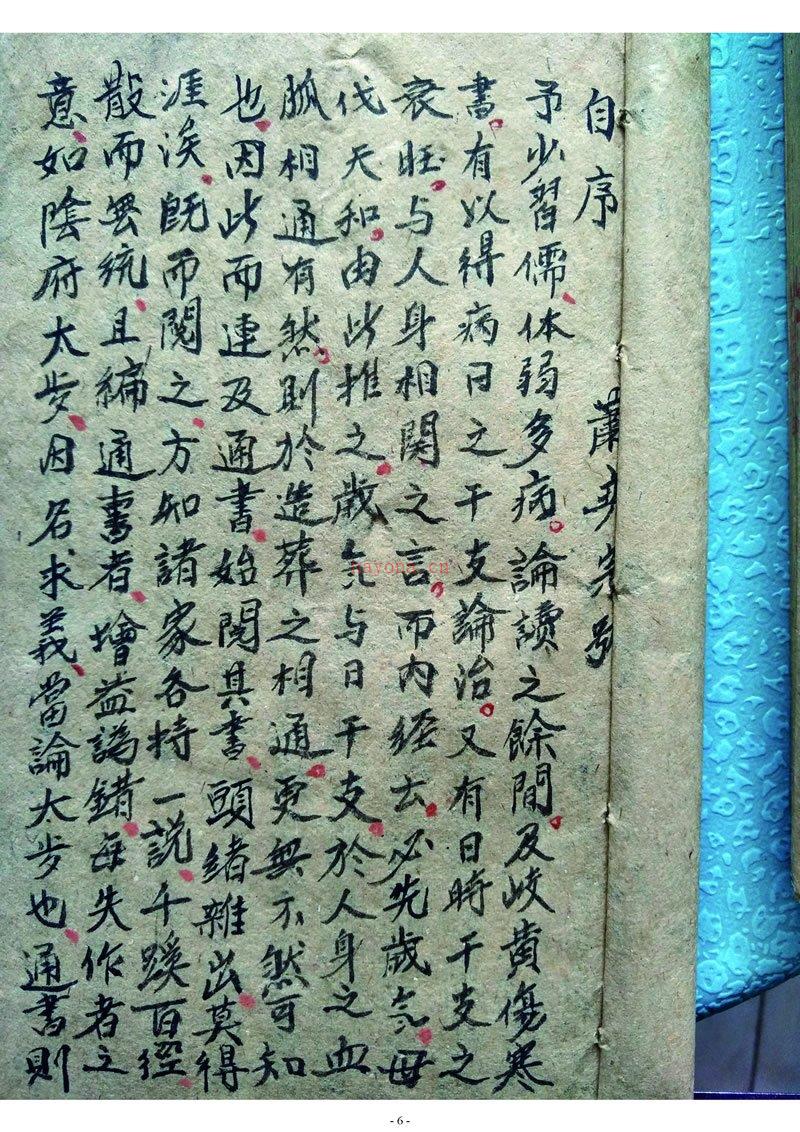 自序
予少習儒体弱多病論讀之餘間及岐黄傷寒
書有以得病日之干支論治又有日時干支之
衰旺与人身相関之言而内经去必先歲氣毋
伐天和由此推之歲氣与日干支於人身之血
脈相通有然則於造葬之相通更無不然可知
也因此而連及通書始閱其書頭緒雜出莫得
涯涘既而閱之方知諸家各持一說千蹊百徑
散而無统且編通書者增益譌錯每失作者之
意如陰府太歩因名求義當論大歩也通書則
hayona.cn
- 6 -